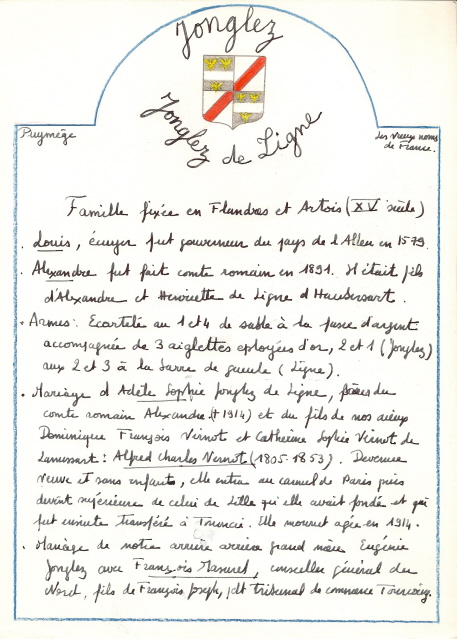 Jonglez
Jonglez de Ligne
Puymège
Les vieux noms
de France.
Famille fixée en Flandres et Artois (XV siècle)
. Louis, écuyer fut gouverneur du pays de l'Alleu en 1579.
. Alexandre fut fait comte romain en 1891. Il était fils
d'Alexandre et Henriette de Ligne d'Haubersart.
. Armes: Ecartelé au 1 et 4 de sable à la fasce d'argent
accompagnée de 3 aiglettes eployées d'or, 2 et 1 (Jonglez)
aux 2 et 3 à la barre de gueule (Ligne).
. Mariage d'Adèle Sophie Jonglez de Ligne, du
comte romain Alexandre († 1914) et du fils de nos aieux
Dominique François Vernot et Catherine Sophie Vernot de
Lamussart: Alfred Charles Vernot (1805-1853). Devenue
veuve et sans enfants, elle entra au carmel de Paris puis
devint supérieure de celui de Lille qu'elle avait fondé et qui
fut ensuite transféré à Tournai. Elle mourut agée en 1914.
. Mariage de notre arrière arrière grand mère Eugénie
Jonglez avec François Masurel, conseiller général du
Nord, fils de François Joseph, pdt tribunal de commerce Tourcoing.